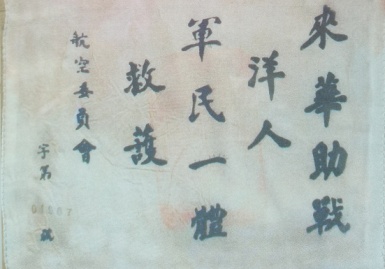 來華助戰
洋人
軍民一體
救護
航空委員會
字第
號